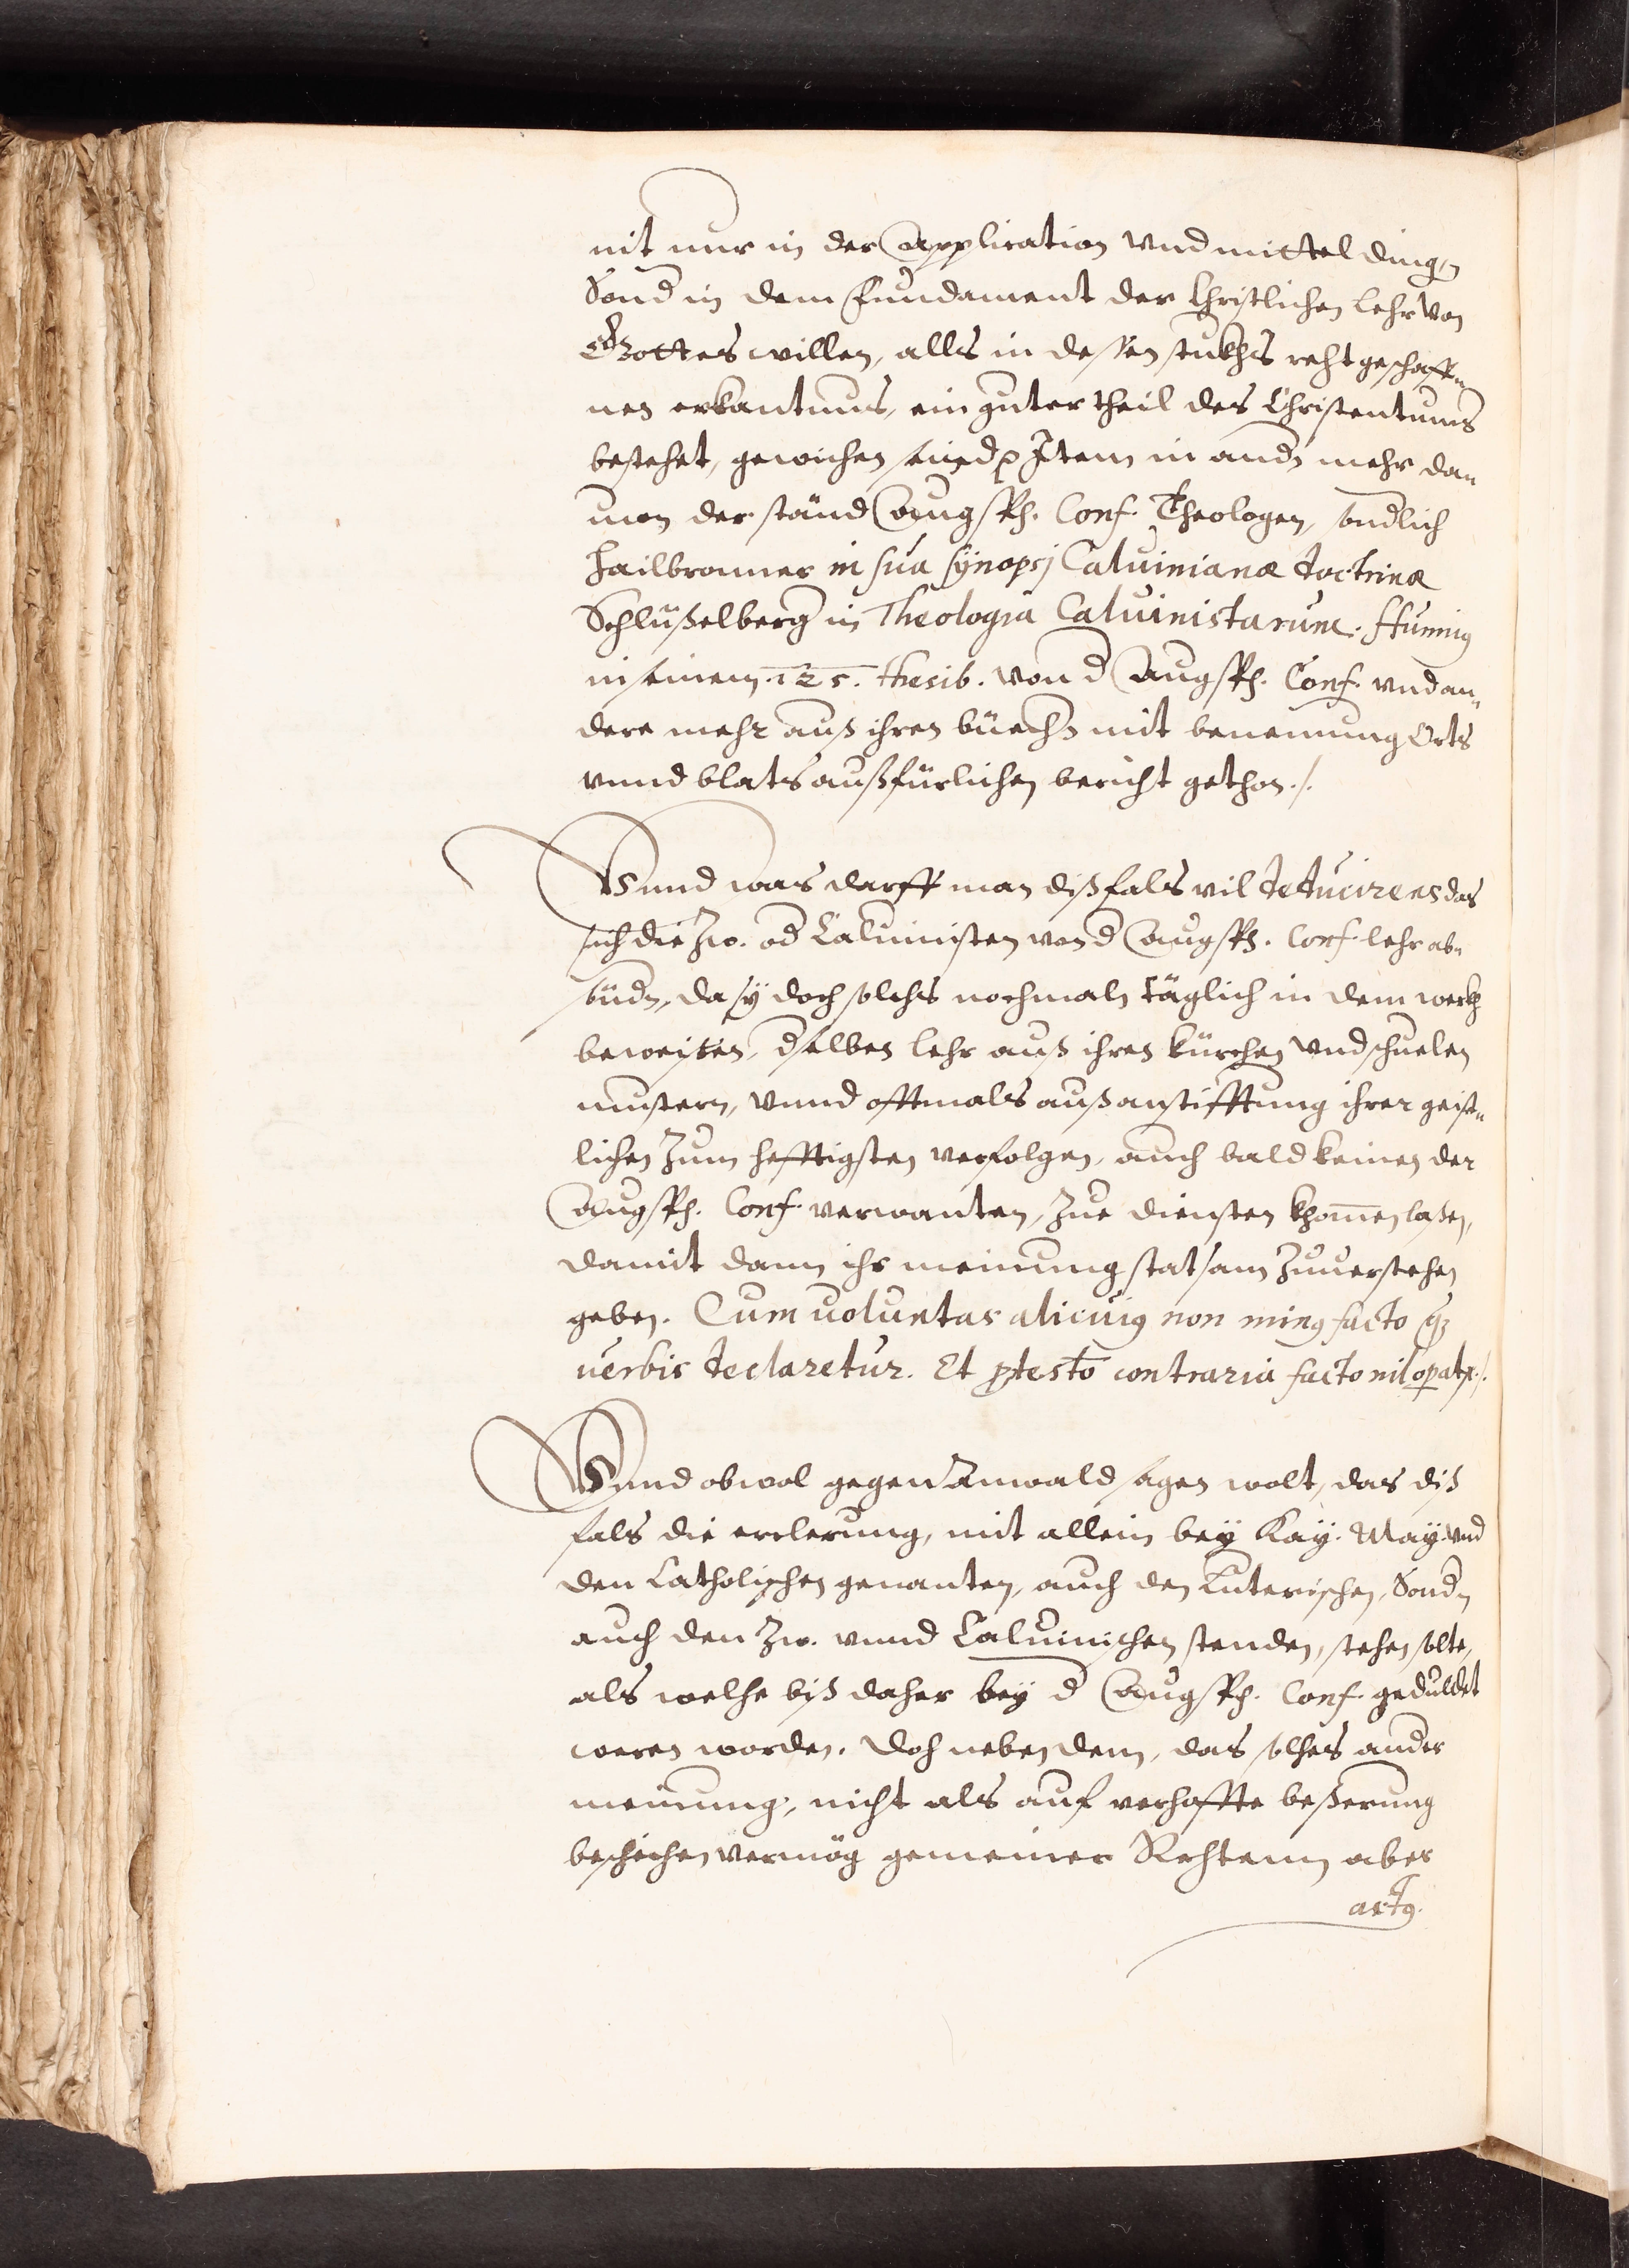 nit nur in der Application vnd mittel dingen
Sond in dem Fundament der Christlichen Lehr von
Gottes willen, alls in dessen stukhs reht geschaffe„
nen erkantnus, ein guter theil des Christentums
bestehet, gewichen seind Item in andn mehr dan„
non der ständ Augsp. Conf. Theologen, sondlich
Hailbronner in sua synopsi Caluinianæ doctrinæ
Schlüßelberg in Theologia Caluinistarum. Hunnig
in seinem 125. thesib. von d Augsp. Conf. vnd an„
dere mehr auß ihren büechn mit benennung Orts
vnnd blats außfürlichen bericht gethon ./.
Vnnd was darff man dißfals vil deducirens das
sich die Zw. od Caluinisten von d Augsp. Conf. lehr ab„
sündn, da sÿ doch solchs nochmaln täglich in dem werkh
beweisen, dselben lehr auß ihren kürchen vnd schuelen
mustern, vnnd offtmals auß anstifftung ihrer geist„
lichen zum hefftigsten verfolgen, auch bald keinen der
Augsp. Conf. verwanten, zue diensten khomen laßen,
damit dann ihr meinung statsam zuuerstehen
geben. Cum uoluntas alicuig non ming facto qz
uerbis declaretur. Et ptesto contraria facto nil opatr ./.
Vnnd obwol gegen Anwald sagen wolt, das diß
fals die erclerung, nit allein beÿ Kaÿ. Maÿ. vnd
den Catholischen genanten, auch den Luterischen, Sondn
auch den Zw. vnnd Caluinischen stenden, stehen solte,
als welche biß daher beÿ d Augsp. Conf. geduldet
weren worden. Doch neben dem, das solches ander
meinung, nicht als auf verhoffte beßerung
beschechen vermög gemeiner Rechtenn aber
actg.